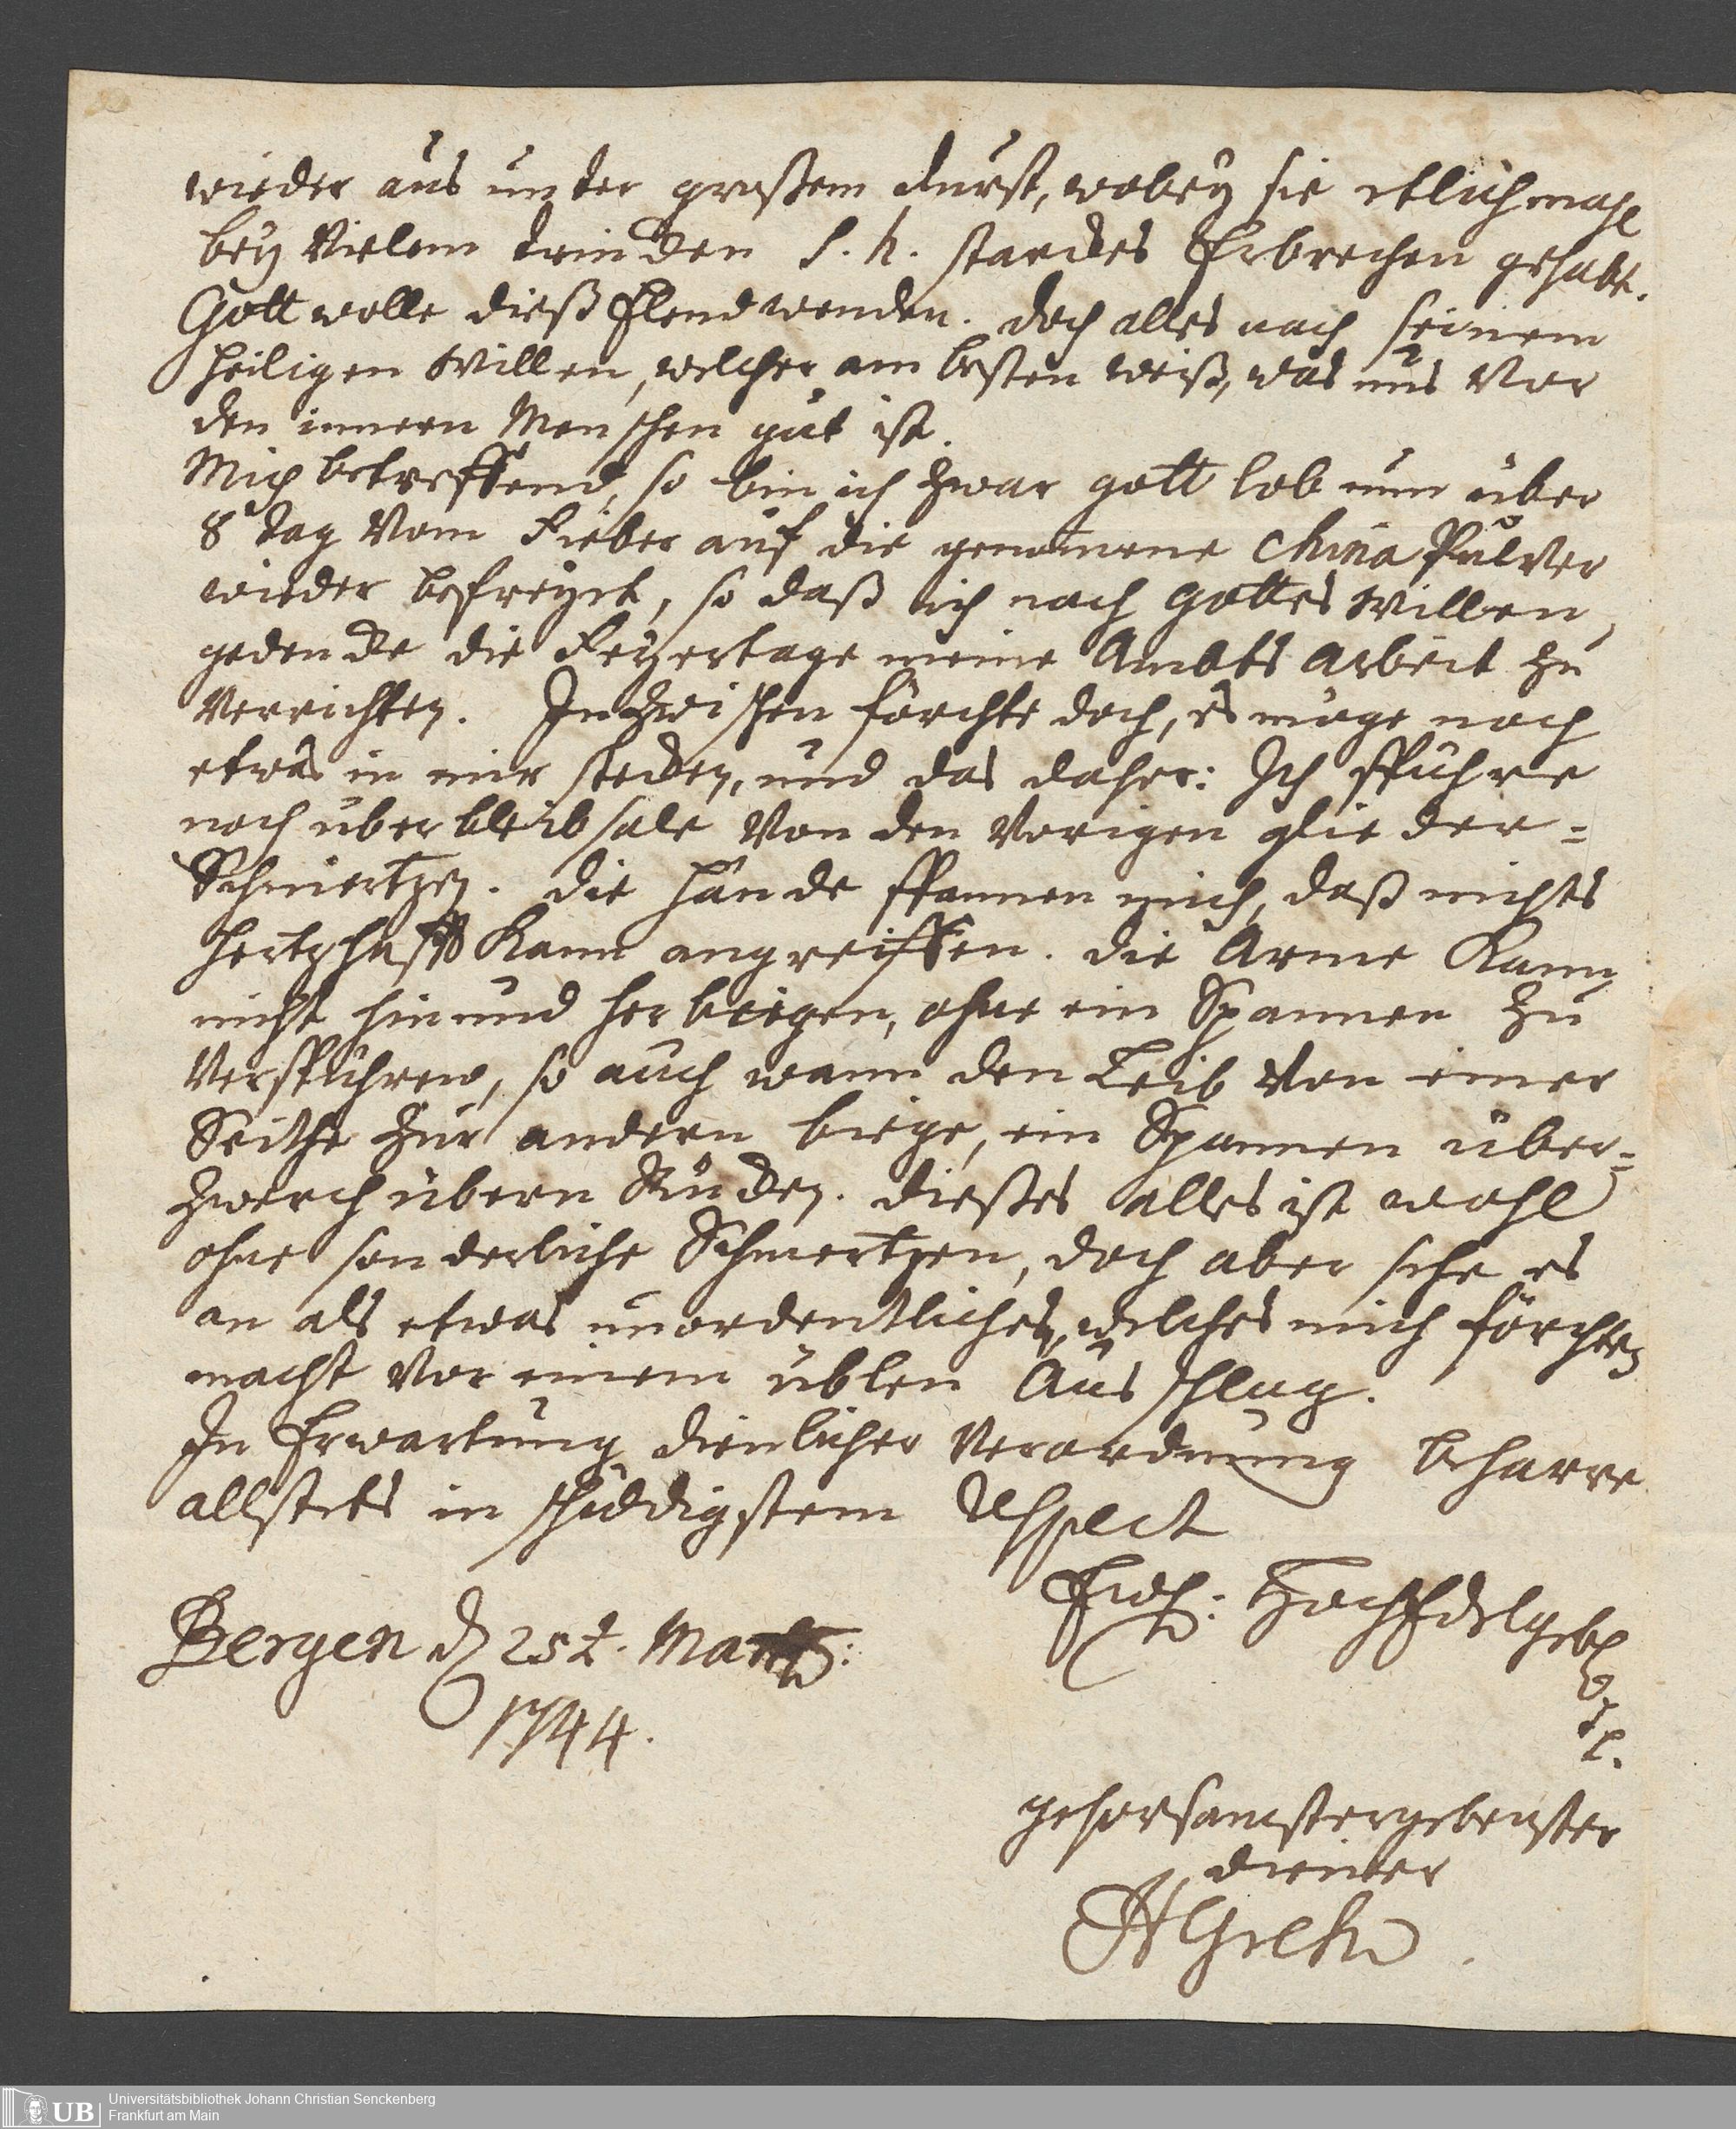 wieder aus unter großem durst, wobey sie etlich mahl
bey vielem trincken S. h. starckes Erbrechen gehabt.
Gott wolle dieß Elend wenden. doch alles nach seinem
heiligen Willen, welcher am besten weiß, was uns vor
den innern Menschen gut ist.
Mich betreffend, so bin ich zwar gott lob nun über
8 tag vom Fieber auf die genommene China Pulver
wieder befreyet, so daß ich nach Gottes Willen
gedencke die Feyertage meine Ambts Arbeit zu
verrichten. Inzwischen förchte doch, es möge noch
etwas in mir stecken, und das daher: Ich spühre
noch überbleibsale von den vorigen glieder-
Schmertzen. die Hände spannen mich, daß nichts
hertzhafft kann angreiffen. die Arme kann
nicht hin und her biegen, ohne ein Spannen zu
verspühren, so auch wann den Leib von einer
Seithe zur andern biege, ein Spannen über-
zwerch übern Rücken. dießes alles ist wohl
ohne sonderliche Schmertzen, doch aber sehe es
an als etwas unordentliches, welches mich förchten
macht vor einem üblen Ausschlag.
In Erwartung dienlicher Verordnung beharre
allstets in schuldigstem Respect
Ewh: HochEdelgeb
Bergen d 25t. Martz:
1744.
gehorsamstergebenster
diener